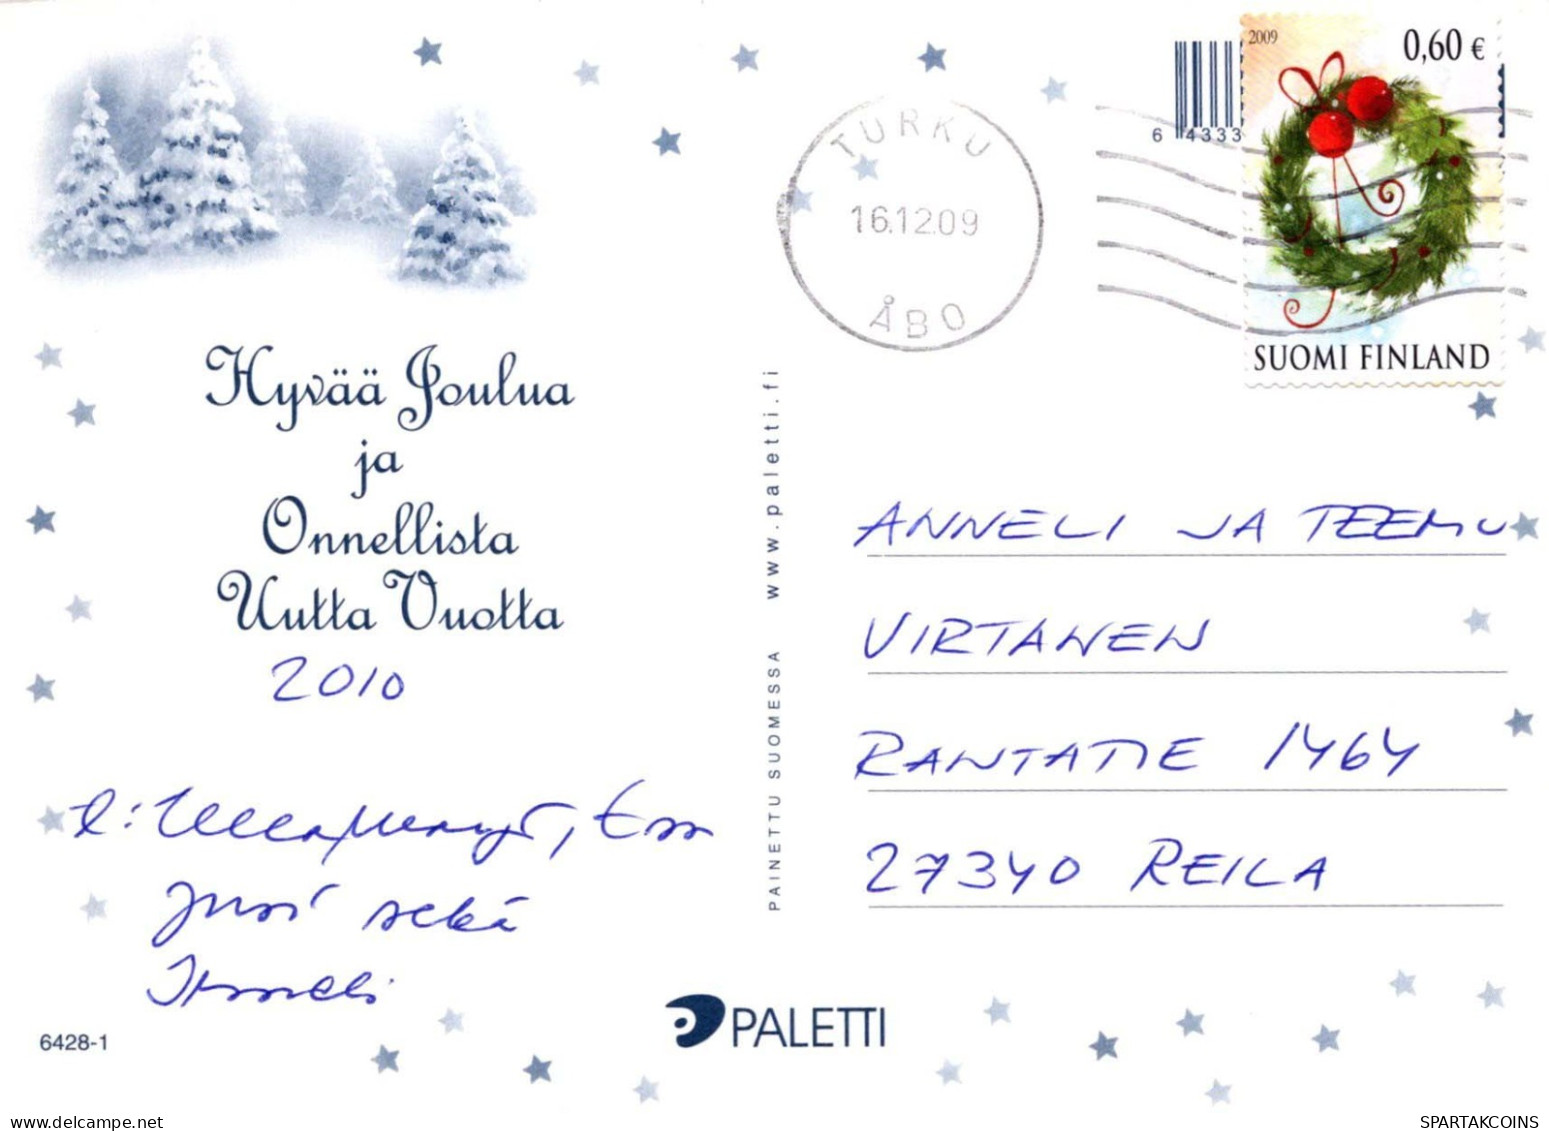 2009
0,60 €
6 4333
TURKU
16.12.09
ÅBO
SUOMI FINLAND
Hyvää Joulua
ja
Onnellista
Uutta Vuotta
2010
t:
Jussi sekä
PAINETTU SUOMESSA www.paletti.fi
ANNELI JA TEEMU
VIRTANEN
RANTATIE 1464
27340 REILA
6428-1
PALETTI
SPARTAKCOINS
https://www.delcampe.net